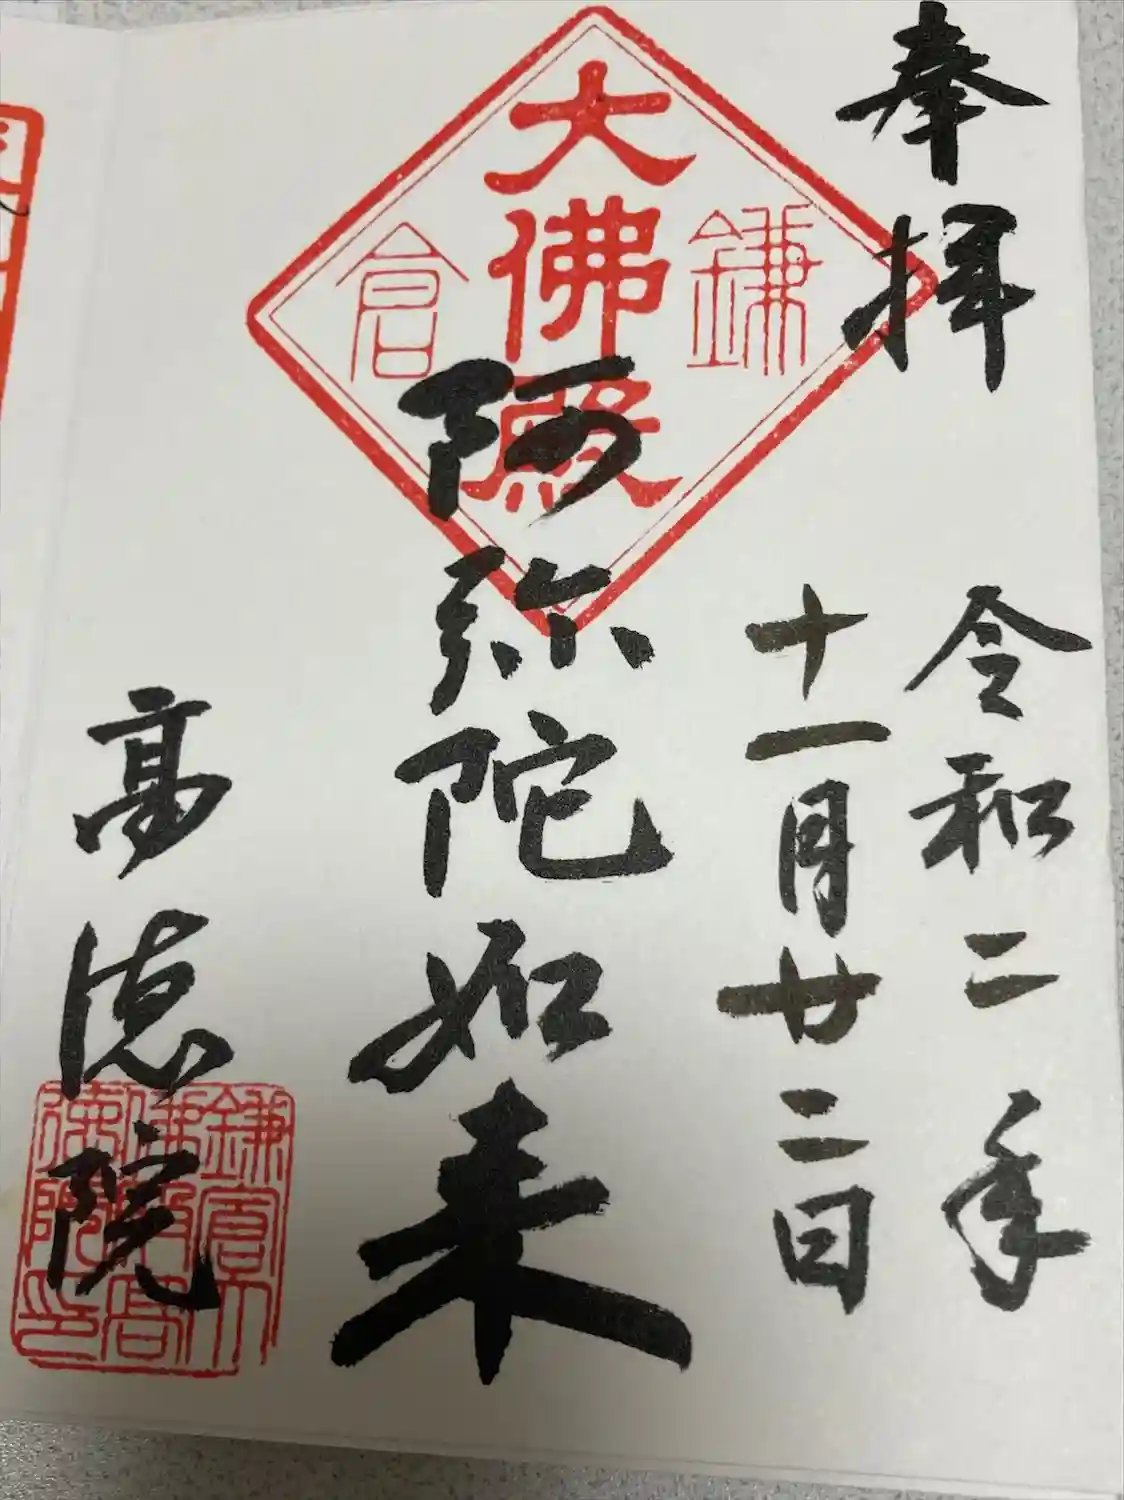 奉拝
令和二年
十一月廿二日
鎌倉
大佛殿
阿弥陀如来
高徳院
鎌倉大
佛殿高
德院印